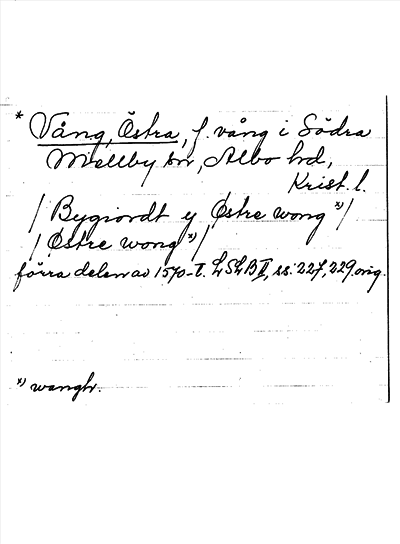 * Vång, Östra, f. vång i Södra
Mellby sn, Albo hd,
Krist. l.
/ Bygiordt y Østre wong *) /
/ Østre wong *) /
förra delen av 1570-t. LSLB II, ss. 227, 229 orig.
*) wangh.